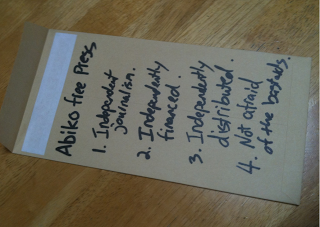 Abiko free Press
1. Independent
journalism.
2. Independently
financed.
3. Independently
distributed.
4. Not afraid
of the bastards.